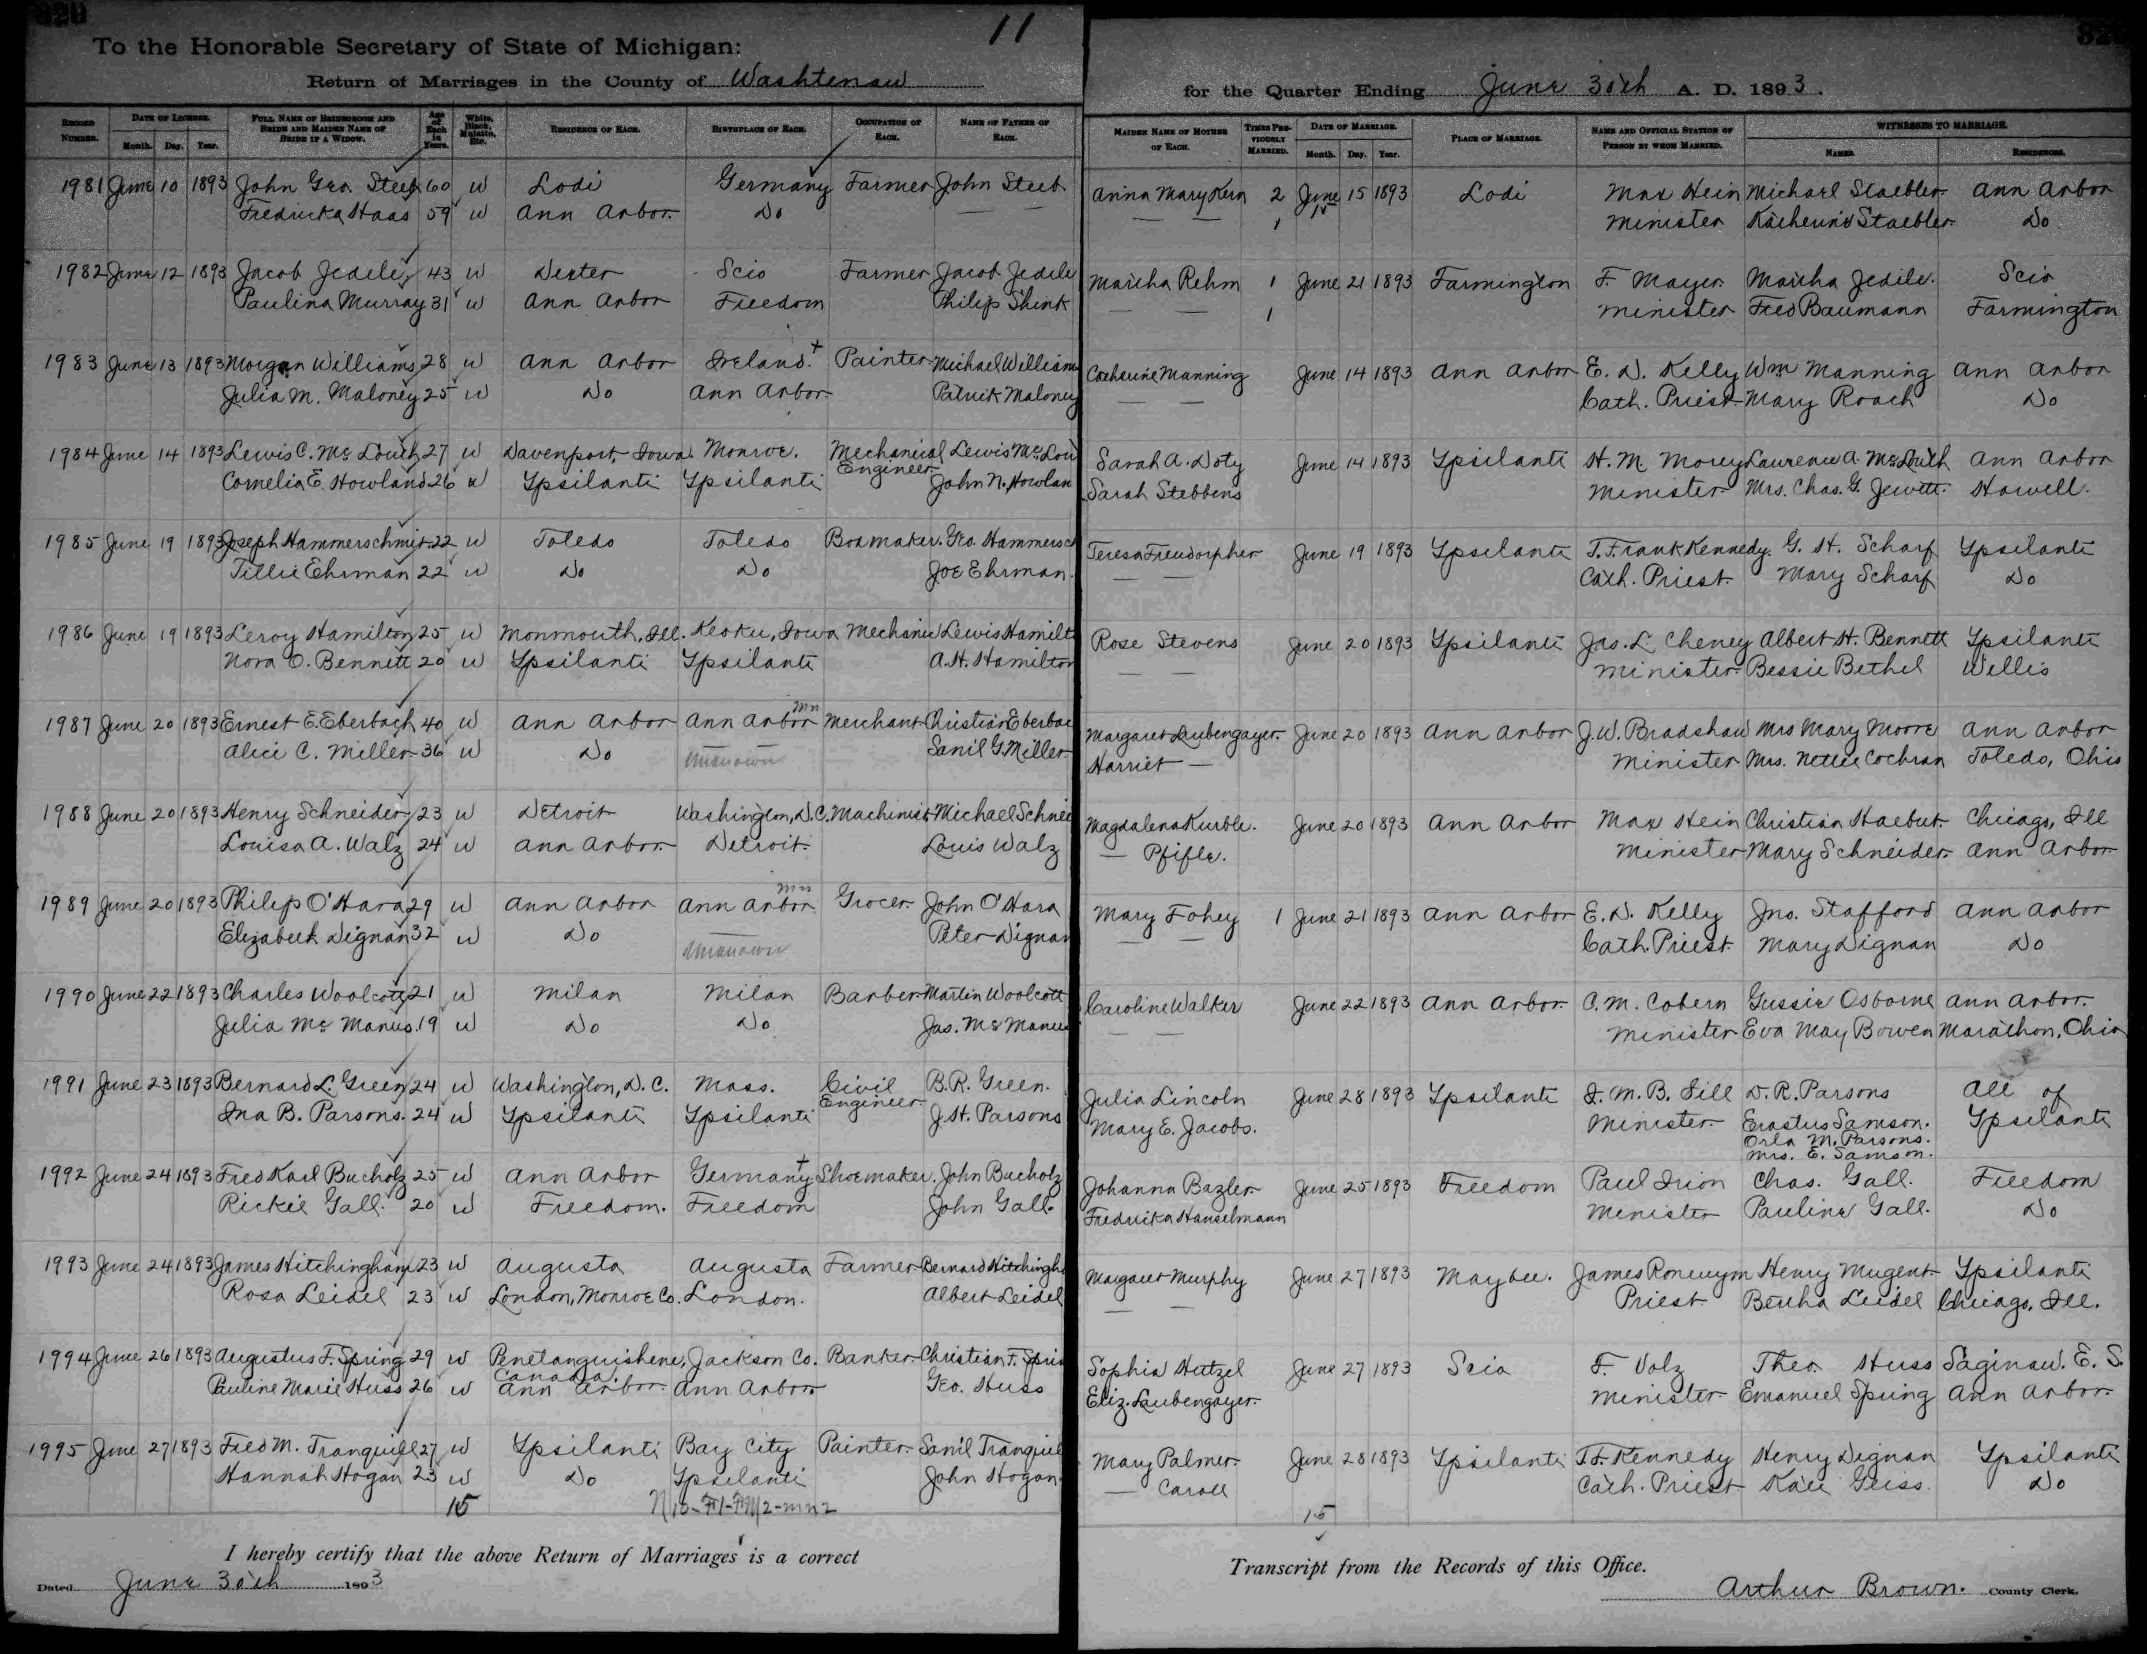 11
To the Honorable Secretary of State of Michigan:
Return of Marriages in the County of Washtenaw for the Quarter Ending June 30th A. D. 1893.
RECORD NUMBER. DATE OF LICENSE. Month. Day. Year. FULL NAME OF BRIDEGROOM AND BRIDE AND MAIDEN NAME OF BRIDE IF A WIDOW. Age of Each in Years. White, Black, Mulatto, Etc. RESIDENCE OF EACH. BIRTHPLACE OF EACH. OCCUPATION OF EACH. NAME OF FATHER OF EACH. MAIDEN NAME OF MOTHER OF EACH. TIMES PREVIOUSLY MARRIED. DATE OF MARRIAGE. Month. Day. Year. PLACE OF MARRIAGE. NAME AND OFFICIAL STATION OF PERSON BY WHOM MARRIED. WITNESSES TO MARRIAGE. NAMES. RESIDENCES.
1981 June 10 1893 John Geo. Steeb 60 W Lodi Germany Farmer John Steeb Anna Mary Kern 2 June 15 1893 Lodi Max Hein Michael Staebler Ann Arbor
Fredricka Haas 59 W Ann Arbor Do — — — — 1 15 Minister Katherine Staebler Do
1982 June 12 1893 Jacob Jedele 43 W Dexter Scio Farmer Jacob Jedele Martha Rehm 1 June 21 1893 Farmington F. Mayer Martha Jedele. Scio
Paulina Murray 31 W Ann Arbor Freedom Philip Shink — — 1 Minister Fred Baumann Farmington
1983 June 13 1893 Morgan Williams 28 W Ann Arbor Ireland. + Painter Michael William Catherine Manning June 14 1893 Ann Arbor E. D. Kelly Wm Manning Ann Arbor
Julia M. Maloney 25 W Do Ann Arbor Patrick Maloney — — Cath. Priest Mary Roach Do
1984 June 14 1893 Lewis C. McLouth 27 W Davenport, Iowa. Monroe. Mechanical Engineer Lewis McLou Sarah A. Doty June 14 1893 Ypsilanti H. M. Morey Laurence A. McLouth Ann Arbor
Cornelia E. Howland 26 W Ypsilanti Ypsilanti John N. Howlan Sarah Stebbens Minister Mrs. Chas. G. Jewett. Howell.
1985 June 19 1893 Joseph Hammerschmit 22 W Toledo Toledo Boxmaker. Geo. Hammersch Teresa Freudorpher June 19 1893 Ypsilanti T. Frank Kennedy. G. H. Scharf Ypsilanti
Tillie Ehrman 22 W Do Do Joe Ehrman. — — Cath. Priest. Mary Scharf Do
1986 June 19 1893 Leroy Hamilton 25 W Monmouth, Ill. Keoku, Iowa Mechanic Lewis Hamilt Rose Stevens June 20 1893 Ypsilanti Jas. L. Cheney Albert H. Bennett Ypsilanti
Nora O. Bennett 20 W Ypsilanti Ypsilanti A. H. Hamilton — — Minister Bessie Bethel Willis
1987 June 20 1893 Ernest E. Eberbach 40 W Ann Arbor Ann Arbor mn Merchant Christian Eberbac Margaret Laubengayer. June 20 1893 Ann Arbor J. W. Bradshaw Mrs Mary Moore Ann Arbor
Alice C. Miller 36 W Do — — unknown Sanil G. Miller Harriet — Minister Mrs. Nettie Cochran Toledo, Ohio
1988 June 20 1893 Henry Schneider 23 W Detroit Washington, D.C. Machinist Michael Schnei Magdalena Kurble. June 20 1893 Ann Arbor Max Hein Christian Haebut. Chicago, Ill
Louisa A. Walz 24 W Ann Arbor Detroit. Louis Walz — Pfifle. Minister Mary Schneider. Ann Arbor
1989 June 20 1893 Philip O'Hara 29 W Ann Arbor Ann Arbor mn Grocer John O'Hara Mary Fohey 1 June 21 1893 Ann Arbor E. D. Kelly Jno. Stafford Ann Arbor
Elizabeth Dignan 32 W Do — unknown Peter Dignan — — Cath. Priest Mary Dignan Do
1990 June 22 1893 Charles Woolcott 21 W Milan Milan Barber Martin Woolcott Caroline Walker June 22 1893 Ann Arbor C. M. Cobern Gussie Osborne Ann Arbor.
Julia McManus. 19 W Do Do Jas. McManus — — Minister Eva May Bowen Marathon, Ohio
1991 June 23 1893 Bernard L. Green 24 W Washington, D. C. Mass. Civil Engineer B. R. Green. Julia Lincoln June 28 1893 Ypsilanti J. M. B. Sill D. R. Parsons All of
Ina B. Parsons. 24 W Ypsilanti Ypsilanti J. H. Parsons Mary E. Jacobs. Minister Erastus Samson. Ypsilanti
Orla M. Parsons.
Mrs. E. Samson.
1992 June 24 1893 Fred Karl Bucholz 25 W Ann Arbor Germany + Shoemaker. John Bucholz Johanna Bazler June 25 1893 Freedom Paul Irion Chas. Gall. Freedom
Rickie Gall. 20 W Freedom. Freedom John Gall Fredrika Hanselmann Minister Pauline Gall. Do
1993 June 24 1893 James Hitchingham 23 W Augusta Augusta Farmer Bernard Hitchingh Margaret Murphy June 27 1893 Maybee. James Roneuym Henry Mugent Ypsilanti
Rosa Leidel 23 W London, Monroe Co. London. Albert Leidel — — Priest Bertha Leidel Chicago, Ill.
1994 June 26 1893 Augustus F. Spring 29 W Penetanguishene, Canada. Jackson Co. Banker Christian F. Sprin Sophia Hutzel June 27 1893 Scio F. Volz Theo. Huss Saginaw. E. S.
Pauline Marie Huss 26 W Ann Arbor. Ann Arbor Geo. Huss Eliz. Laubengayer. Minister Emanuel Spring Ann Arbor
1995 June 27 1893 Fred M. Tranquill 27 W Ypsilanti Bay City Painter Sanil Tranquil Mary Palmer. June 28 1893 Ypsilanti T. F. Kennedy Henry Dignan Ypsilanti
Hannah Hogan 23 W Do Ypsilanti John Hogan — Caroll Cath. Priest Kate Geiss Do
15 15
I hereby certify that the above Return of Marriages is a correct Transcript from the Records of this Office.
Dated June 30th 1893 Arthur Brown. County Clerk.